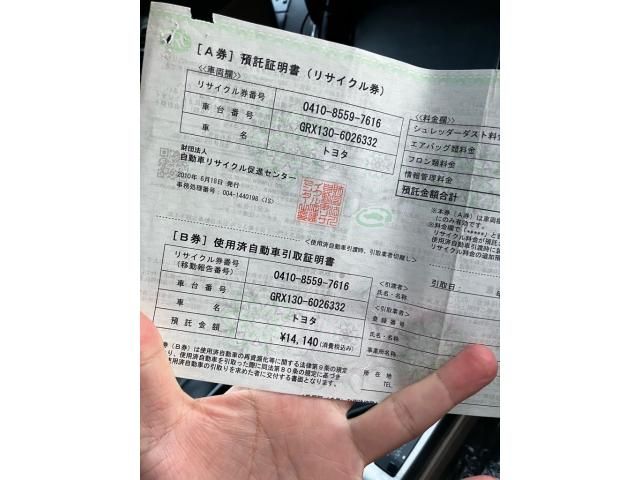 [A券] 預託証明書(リサイクル券)
<<車両欄>>
リサイクル券番号 0410-8559-7616
車台番号 GRX130-6026332
車名 トヨタ
財団法人
自動車リサイクル促進センター
2010年 6月18日 発行
事務処理番号:004-1440198 (1S)
<<料金欄>>
シュレッダーダスト料金
エアバッグ類料金
フロン類料金
情報管理料金
預託金額合計
※本券(A券)は車両
にのみ有効です。
※料金欄で(*****)と
リサイクル料金が預託
使用済自動車引渡時に
リサイクル料金の追加
<使用済自動車引渡時、引取業者切離し>
[B券] 使用済自動車引取証明書
リサイクル券番号
(移動報告番号) 0410-8559-7616
車台番号 GRX130-6026332
車名 トヨタ
預託金額 ¥14,140(消費税込み)
引取日:
<引渡者>
氏名・名称
<引取業者>
登録番号
氏名・名称
事業所名称
所在地
TEL
券(B券)は使用済自動車の再資源化等に関する法律第9条の規定
り、使用済自動車を引取った際に同法第80条の規定に基づき
用済自動車の引取りを求めた者に交付する書面となります。